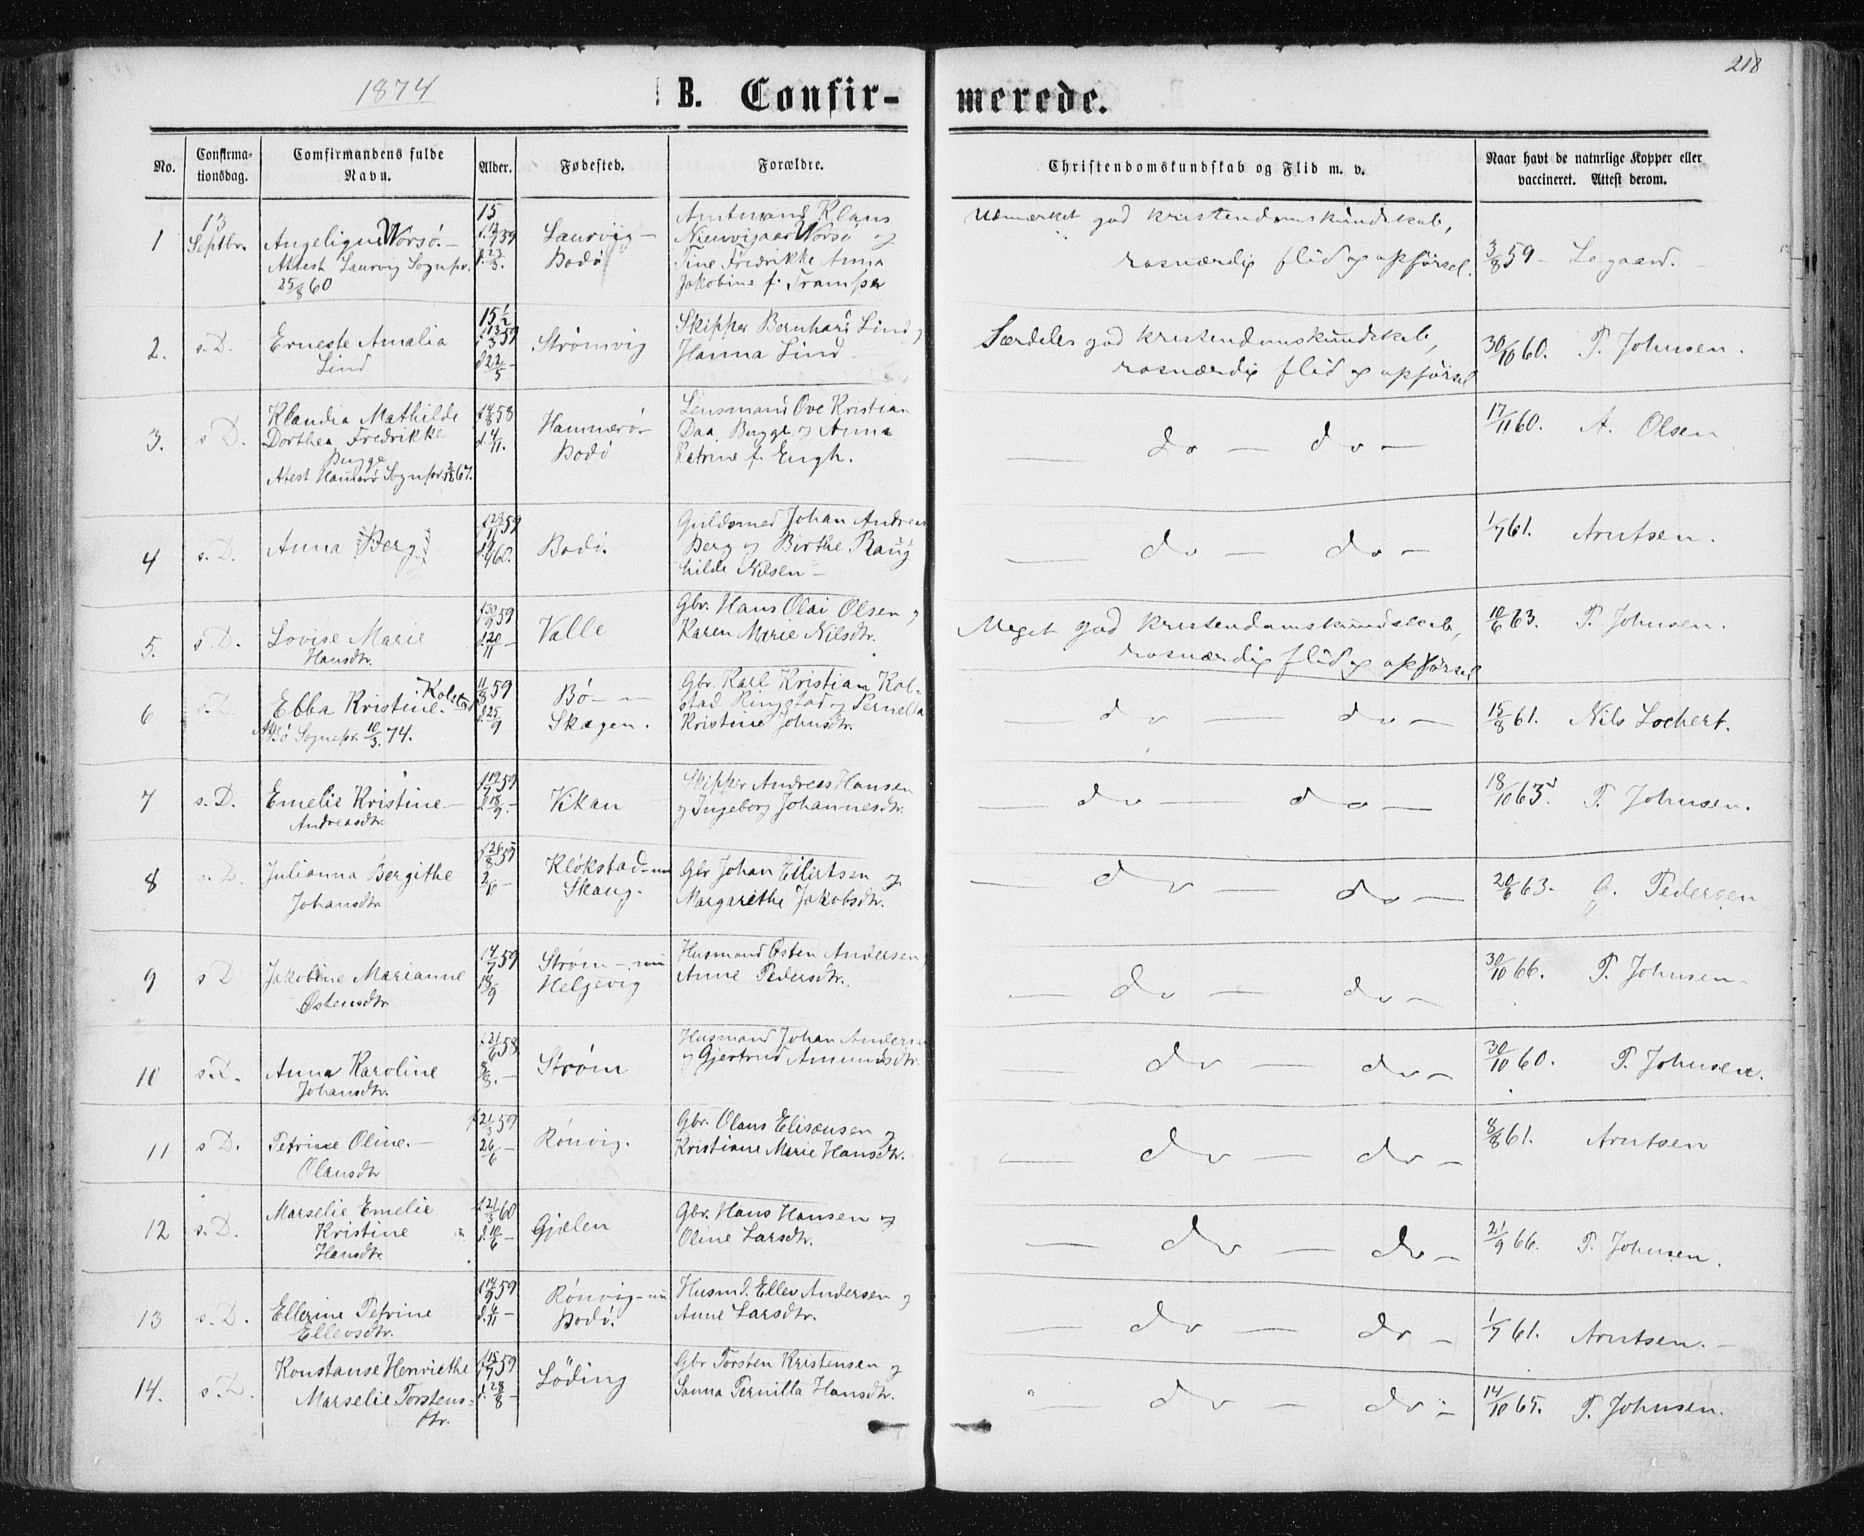 1874
B. Confir-
merede.
218
No.
Confirma-
tionsdag.
Comfirmandens fulde
Navn.
Alder.
Fødested.
Forældre.
Christendomskundskab og Flid m. v.
Naar havt de naturlige Kopper eller
vaccineret. Attest derom.
1
13
Septbr.
Angelique Worsø. —
Attest Laurvig Sognpr.
25/8 60
15
Laurvig —
Bodø
Amtmand Klaus
Worsø og
Tine Fredrikke Anna
Jakobine f.
Udmærket god kristendomskundskab,
rosværdig flid og opførsel.
3/8 59 — Legaard. —
2.
s. D.
Erneste Amalia
Lind
15 1/2
22/5 —
Strømvig
Skipper Bernhard Lind og
Hanna Lind
Særdeles god kristendomskundskab,
rosværdig flid og opførsel
30/10 60. P. Johnsen.
3.
s D.
Klaudia Mathilde
Dorthea Fredrikke
Bugge
Atest Hamerø Sognpr.
58
4/11.
Hammerø —
Bodø
Lensmand Ove Kristian
Daa Bugge og Anna
Petrine f. Engh.
— do — do —
17/11 60. A. Olsen
4
s. D.
Anna Berg
59
60.
Bodø.
Guldsmed Johan Andreas
Berg og Birthe Raug
hilde Nilsen —
— do — do —
1/7 61. Arntsen.
5.
s. D.
Lovise Marie
Hansdtr.
59
20/11 —
Valle
Gbr. Hans Olai Olsen og
Karen Marie Nilsdtr.
Meget god kristendomskundskab,
rosværdig flid og opførsel
10/6 63. P. Johnsen.
6
s. D.
Ebba Kristine. Kolstad
Bø Sognepr. 10/3. 74.
11/8 59
25/9
Bø —
Skagen.
Gbr. Karl Kristian Kol-
stad Ringstad og Pernella
Kristine Johnsdtr.
— do — do —
15/8 61. Nils Lochert.
7
s. D.
Emelie Kristine —
Andreasdtr.
59
18/9. —
Vikan
Skipper Andreas Hansen
og Ingeborg Johannesdtr.
— do — do —
18/10 63. P. Johnsen.
8
s. D.
Julianna Bergithe
Johansdtr.
26/8 59
2/10 —
Kløkstad — nu
Skaug.
Gbr Johan Eilertsen og
Margarethe Jakobsdtr.
— do — do —
20/6 63. G. Pedersen
9
s D
Jakobine Marianne
Østensdtr
14/7 59
18/9
Strøm — nu
Helgevig
Husmand Østen Andersen og
Anne Pedersdtr.
— do — do —
30/10 66. P. Johnsen —
10
s. D.
Anna Karoline
Johansdtr.
21/6 58.
8/8. —
Strøm
Husmand Johan Andersen
og Gjertrud Amundsdtr.
do — do —
30/10 60. P. Johnsen.
11
s D.
Petrine Oline. —
Olausdtr
21/5 59
26/6 —
Rønvig.
Gbr. Olaus Elisæusen og
Kristiane Marie Hansdtr.
— do — do —
8/8 61. Arntsen
12
s. D.
Marselie Emelie
Kristine
Hansdtr.
21/3 60
10/6 —
Gjælen
Gbr. Hans Hansen og
Oline Larsdtr.
— do — do —
21/9 66. P. Johnsen.
13
s. D.
Ellerine Petrine
Ellevsdtr.
59
4/11 —
Rønvig — nu
Bodø.
Husmd. Ellev Andersen og
Anne Larsdtr.
— do — do —
1/7 61. Arntsen. —
14.
s. D.
Konstanse Henriethe
Marselie Torstens-
dtr.
15/7 59
28/8 —
Løding
Gbr Torsten Kristensen og
Sanna Pernilla Hansdtr.
do — do —
14/10 65. P. Johnsen.